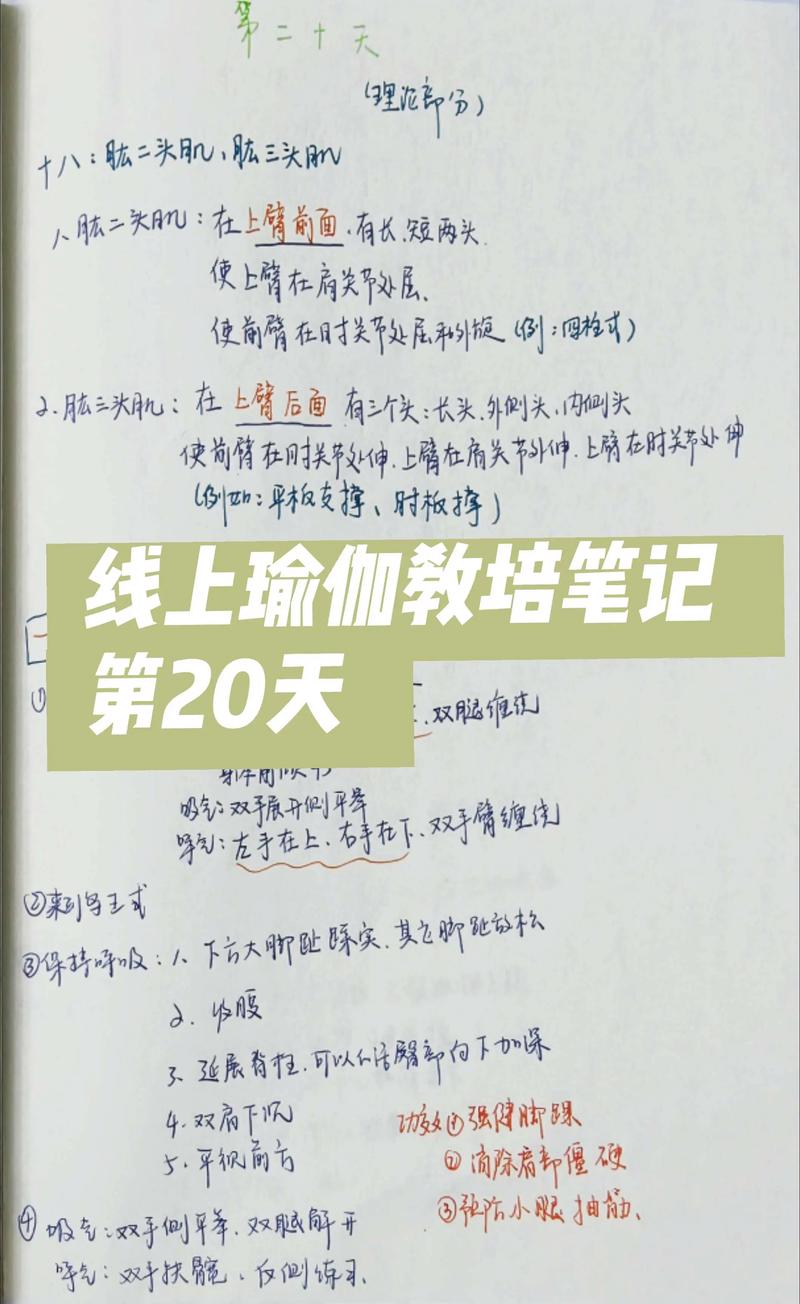 第二十天
(理论部分)
十八:肱二头肌、肱三头肌
1、肱二头肌:在上臂前面.有长.短两头.
使上臂在肩关节处屈、
使前臂在肘关节处屈和外旋(例:四柱式)
2.肱三头肌:在上臂后面 有三个头:长头.外侧头.内侧头
使前臂在肘关节处伸.上臂在肩关节外伸.上臂在肘关节处伸
(例如:平板支撑、肘板撑)
线上瑜伽教培笔记
第20天
①
.双腿缠绕
身体前倾
吸气:双手展开侧平举
呼气:左手在上、右手在下、双手臂缠绕
②来到鸟王式
③保持呼吸:1、下方大脚趾踩实.其它脚趾放松
2、收腹
3、延展脊柱.可以从活臀部向下加深
4.双肩下沉
5.平视前方
功效①强健脚踝
②消除肩部僵硬
③预防小腿抽筋、
④吸气:双手侧平举.双腿解开
呼气:双手扶髋、反侧练习、